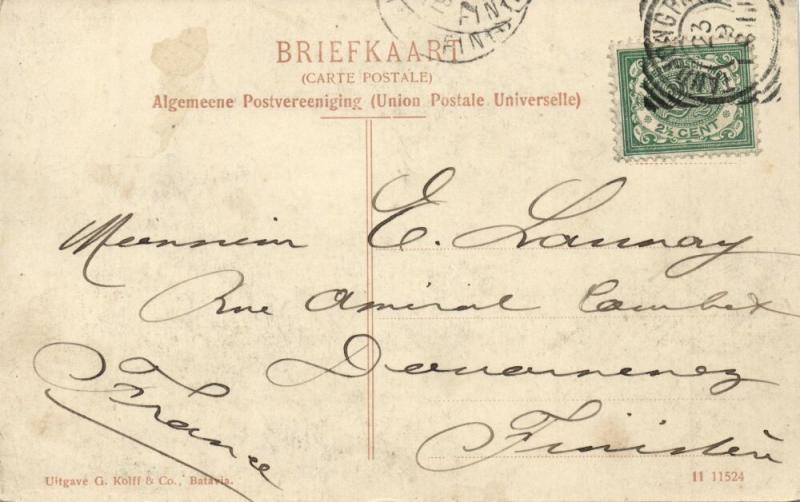 BRIEFKAART
(CARTE POSTALE)
Algemeene Postvereeniging (Union Postale Universelle)
2½ CENT
Monsieur E. Launay
Rue Amiral Courbet
Douarnenez
Finistère
France
Uitgave G. Kolff & Co., Batavia.
11 11524